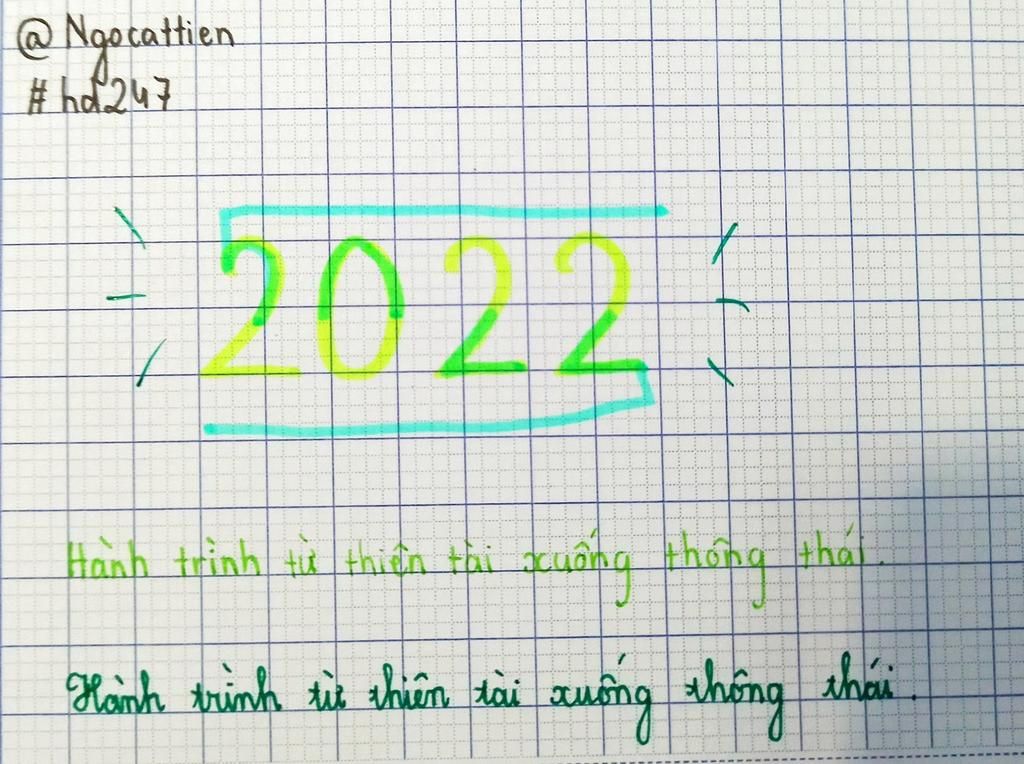 @ Ngocattien
# hd247
2022
Hành trình từ thiên tài xuống thông thái.
Hành trình từ thiên tài xuống thông thái.